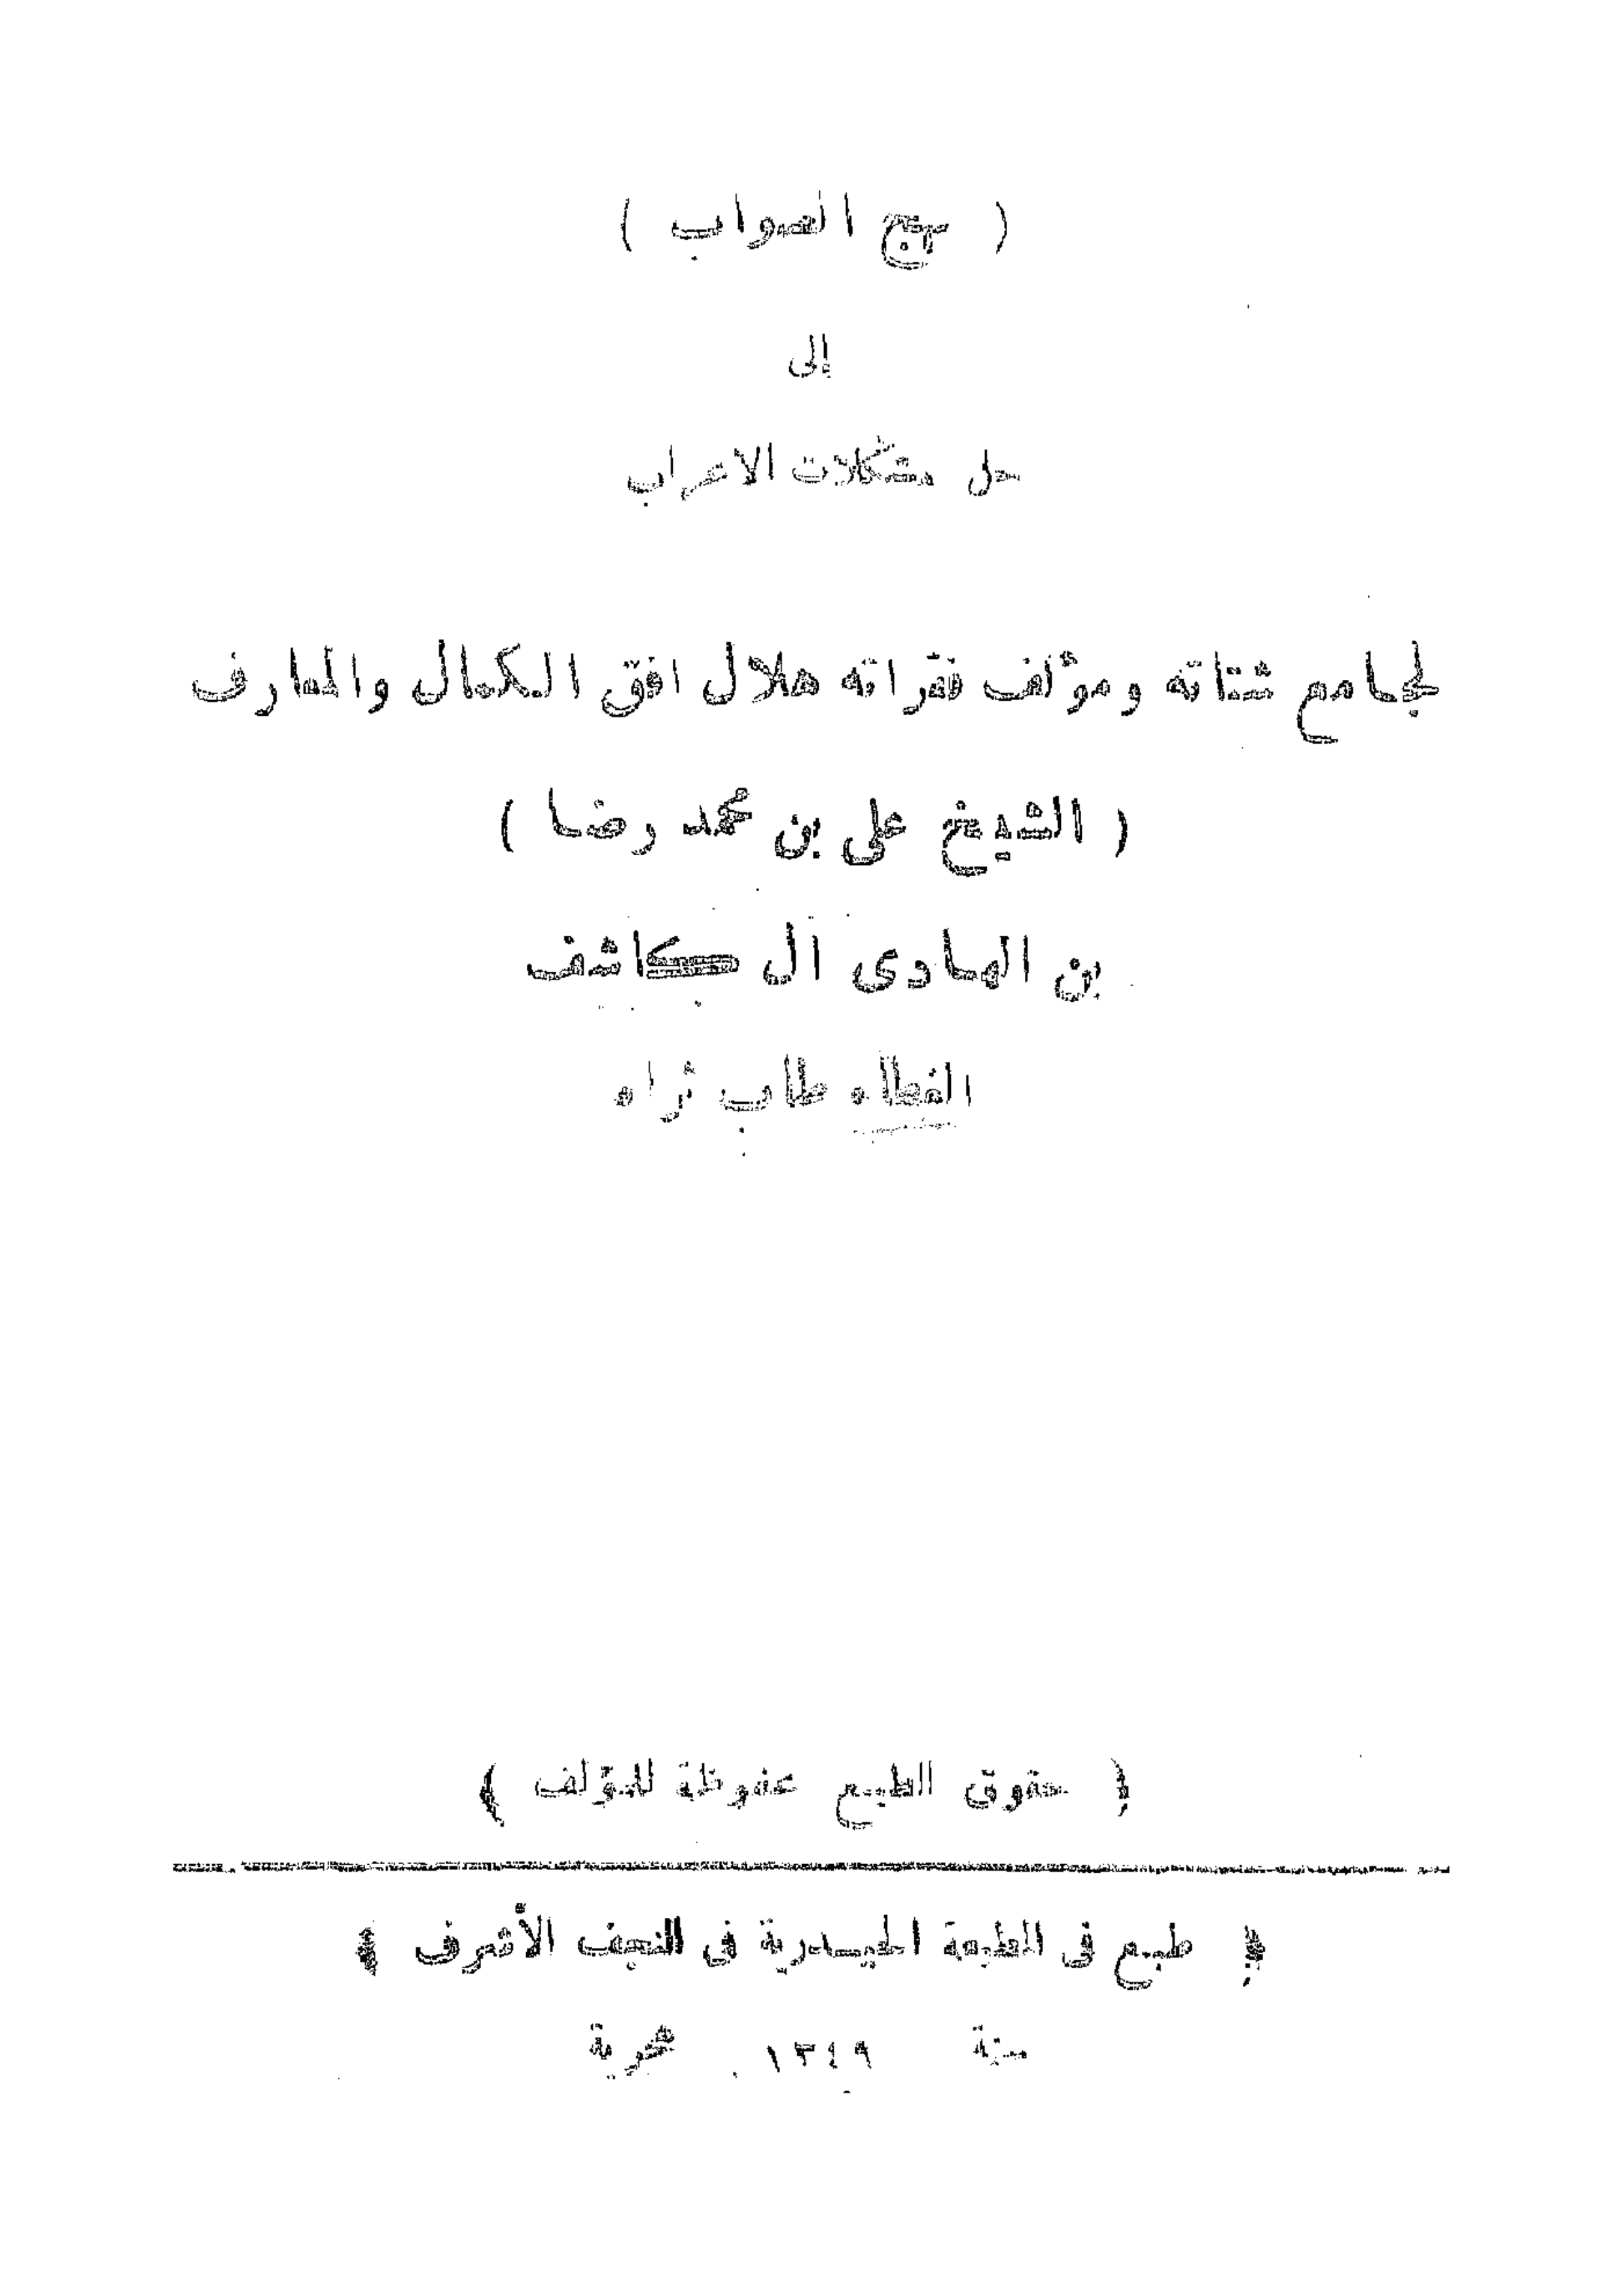 ( نهج الصواب )
إلى
حل مشكلات الاعراب
لجامع شتاته ومؤلف فقراته هلال افق الكمال والمعارف
( الشيخ علی بن محمد رضا )
بن الهادی آل كاشف
الغطاء طاب ثراه
﴿ حقوق الطبع محفوظة للمؤلف ﴾
﴿ طبع فی المطبعة الحيدرية فی النجف الأشرف ﴾
سنة ١٣٤٩ هجرية